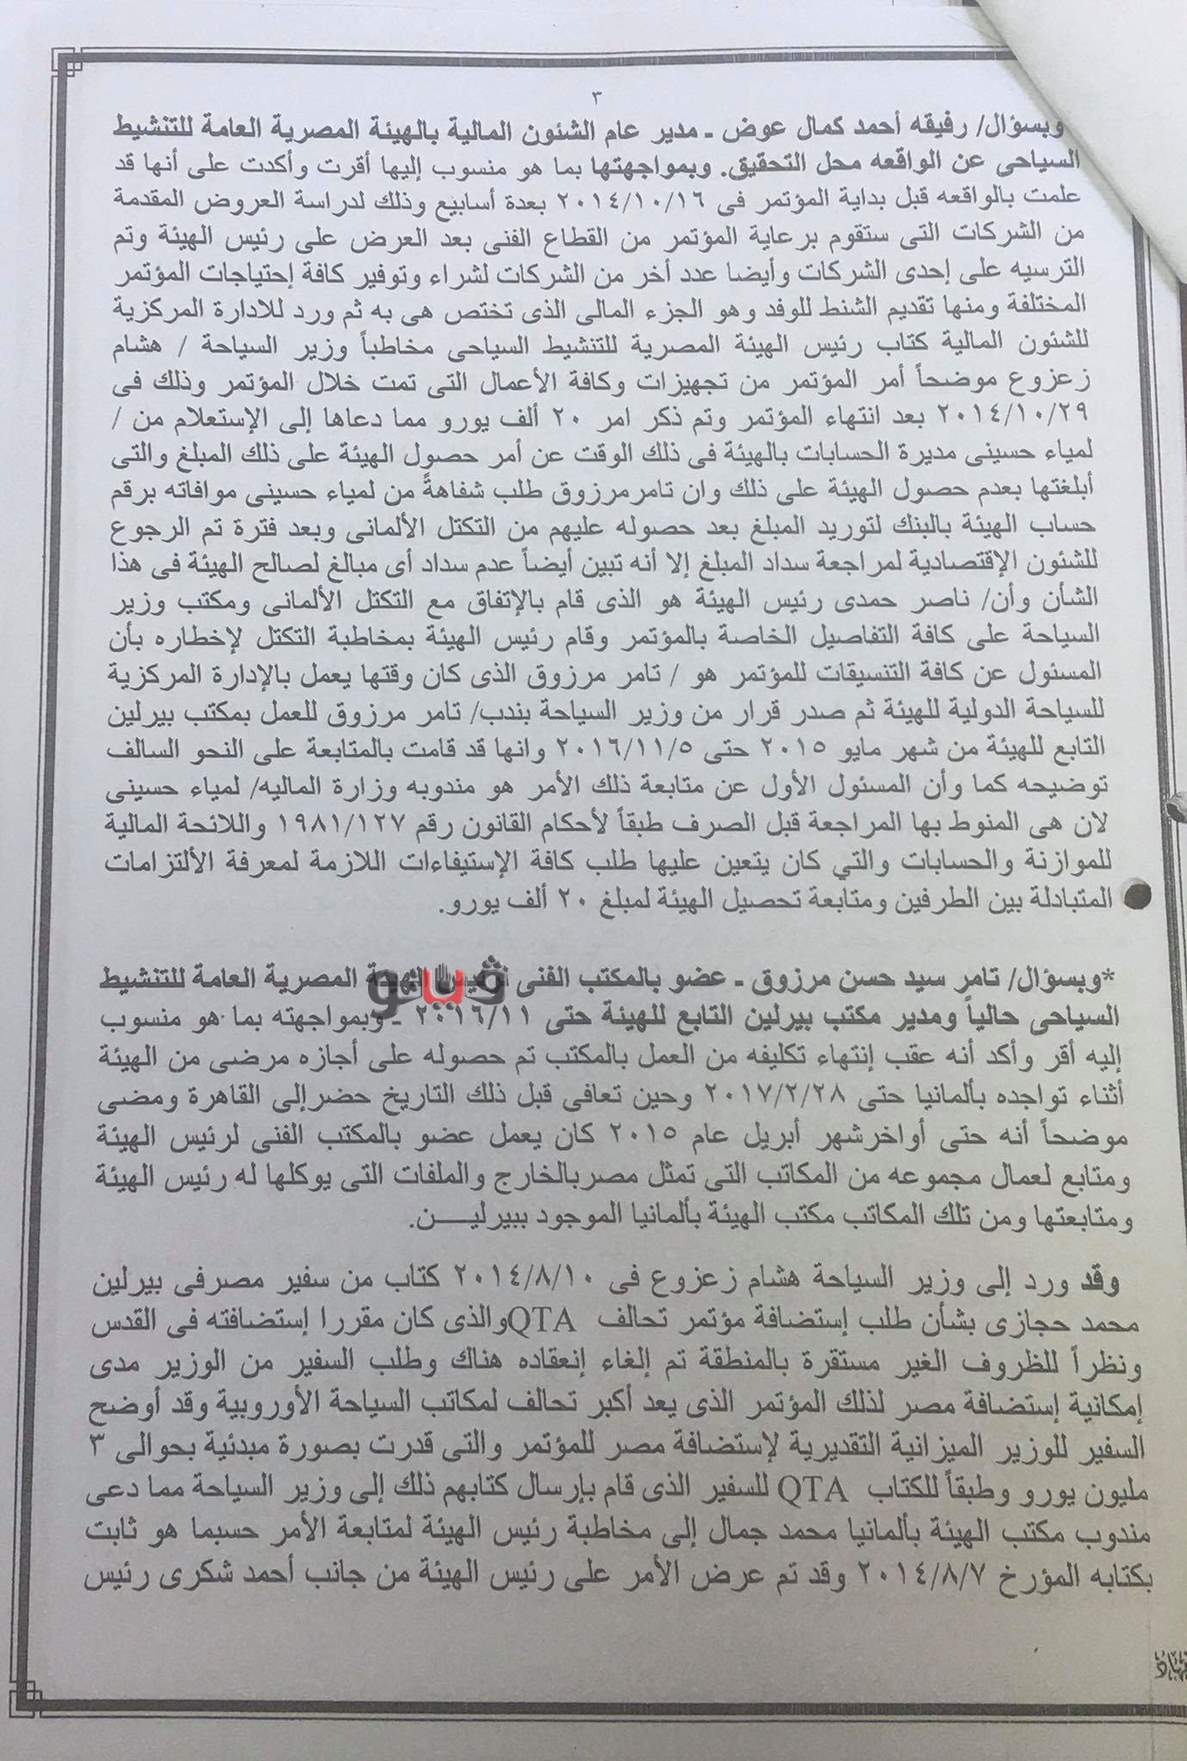 ٣
وبسؤال/ رفيقه أحمد كمال عوض ـ مدير عام الشئون المالية بالهيئة المصرية العامة للتنشيط
السياحى عن الواقعه محل التحقيق. وبمواجهتها بما هو منسوب إليها أقرت وأكدت على أنها قد
علمت بالواقعه قبل بداية المؤتمر فى ٢٠١٤/١٠/١٦ بعدة أسابيع وذلك لدراسة العروض المقدمة
من الشركات التى ستقوم برعاية المؤتمر من القطاع الفنى بعد العرض على رئيس الهيئة وتم
الترسيه على إحدى الشركات وأيضا عدد أخر من الشركات لشراء وتوفير كافة إحتياجات المؤتمر
المختلفة ومنها تقديم الشنط للوفد وهو الجزء المالى الذى تختص هى به ثم ورد للادارة المركزية
للشئون المالية كتاب رئيس الهيئة المصرية للتنشيط السياحى مخاطباً وزير السياحة / هشام
زعزوع موضحاً أمر المؤتمر من تجهيزات وكافة الأعمال التى تمت خلال المؤتمر وذلك فى
٢٠١٤/١٠/٢٩ بعد انتهاء المؤتمر وتم ذكر امر ٢٠ ألف يورو مما دعاها إلى الإستعلام من /
لمياء حسينى مديرة الحسابات بالهيئة فى ذلك الوقت عن أمر حصول الهيئة على ذلك المبلغ والتى
أبلغتها بعدم حصول الهيئة على ذلك وان تامرمرزوق طلب شفاهةً من لمياء حسينى موافاته برقم
حساب الهيئة بالبنك لتوريد المبلغ بعد حصوله عليهم من التكتل الألمانى وبعد فترة تم الرجوع
للشئون الإقتصادية لمراجعة سداد المبلغ إلا أنه تبين أيضاً عدم سداد أى مبالغ لصالح الهيئة فى هذا
الشأن وأن/ ناصر حمدى رئيس الهيئة هو الذى قام بالإتفاق مع التكتل الألمانى ومكتب وزير
السياحة على كافة التفاصيل الخاصة بالمؤتمر وقام رئيس الهيئة بمخاطبة التكتل لإخطاره بأن
المسئول عن كافة التنسيقات للمؤتمر هو / تامر مرزوق الذى كان وقتها يعمل بالإدارة المركزية
للسياحة الدولية للهيئة ثم صدر قرار من وزير السياحة بندب/ تامر مرزوق للعمل بمكتب بيرلين
التابع للهيئة من شهر مايو ٢٠١٥ حتى ٢٠١٦/١١/٥ وانها قد قامت بالمتابعة على النحو السالف
توضيحه كما وأن المسئول الأول عن متابعة ذلك الأمر هو مندوبه وزارة الماليه/ لمياء حسينى
لان هى المنوط بها المراجعة قبل الصرف طبقاً لأحكام القانون رقم ١٩٨١/١٢٧ واللائحة المالية
للموازنة والحسابات والتي كان يتعين عليها طلب كافة الإستيفاءات اللازمة لمعرفة الألتزامات
المتبادلة بين الطرفين ومتابعة تحصيل الهيئة لمبلغ ٢٠ ألف يورو.
*وبسؤال/ تامر سيد حسن مرزوق ـ عضو بالمكتب الفنى المصرية العامة للتنشيط
السياحى حالياً ومدير مكتب بيرلين التابع للهيئة حتى ٢٠١٦/١١ ـ وبمواجهته بما هو منسوب
إليه أقر وأكد أنه عقب إنتهاء تكليفه من العمل بالمكتب تم حصوله على أجازه مرضى من الهيئة
أثناء تواجده بألمانيا حتى ٢٠١٧/٢/٢٨ وحين تعافى قبل ذلك التاريخ حضرإلى القاهرة ومضى
موضحاً أنه حتى أواخرشهر أبريل عام ٢٠١٥ كان يعمل عضو بالمكتب الفنى لرئيس الهيئة
ومتابع لعمال مجموعه من المكاتب التى تمثل مصربالخارج والملفات التى يوكلها له رئيس الهيئة
ومتابعتها ومن تلك المكاتب مكتب الهيئة بألمانيا الموجود ببيرليـــن.
وقد ورد إلى وزير السياحة هشام زعزوع فى ٢٠١٤/٨/١٠ كتاب من سفير مصرفى بيرلين
محمد حجازى بشأن طلب إستضافة مؤتمر تحالف QTA والذى كان مقررا إستضافته فى القدس
ونظراً للظروف الغير مستقرة بالمنطقة تم إلغاء إنعقاده هناك وطلب السفير من الوزير مدى
إمكانية إستضافة مصر لذلك المؤتمر الذى يعد أكبر تحالف لمكاتب السياحة الأوروبية وقد أوضح
السفير للوزير الميزانية التقديرية لإستضافة مصر للمؤتمر والتى قدرت بصورة مبدئية بحوالى ٣
مليون يورو وطبقاً للكتاب QTA للسفير الذى قام بإرسال كتابهم ذلك إلى وزير السياحة مما دعى
مندوب مكتب الهيئة بألمانيا محمد جمال إلى مخاطبة رئيس الهيئة لمتابعة الأمر حسبما هو ثابت
بكتابه المؤرخ ٢٠١٤/٨/٧ وقد تم عرض الأمر على رئيس الهيئة من جانب أحمد شكرى رئيس
ڤيتو